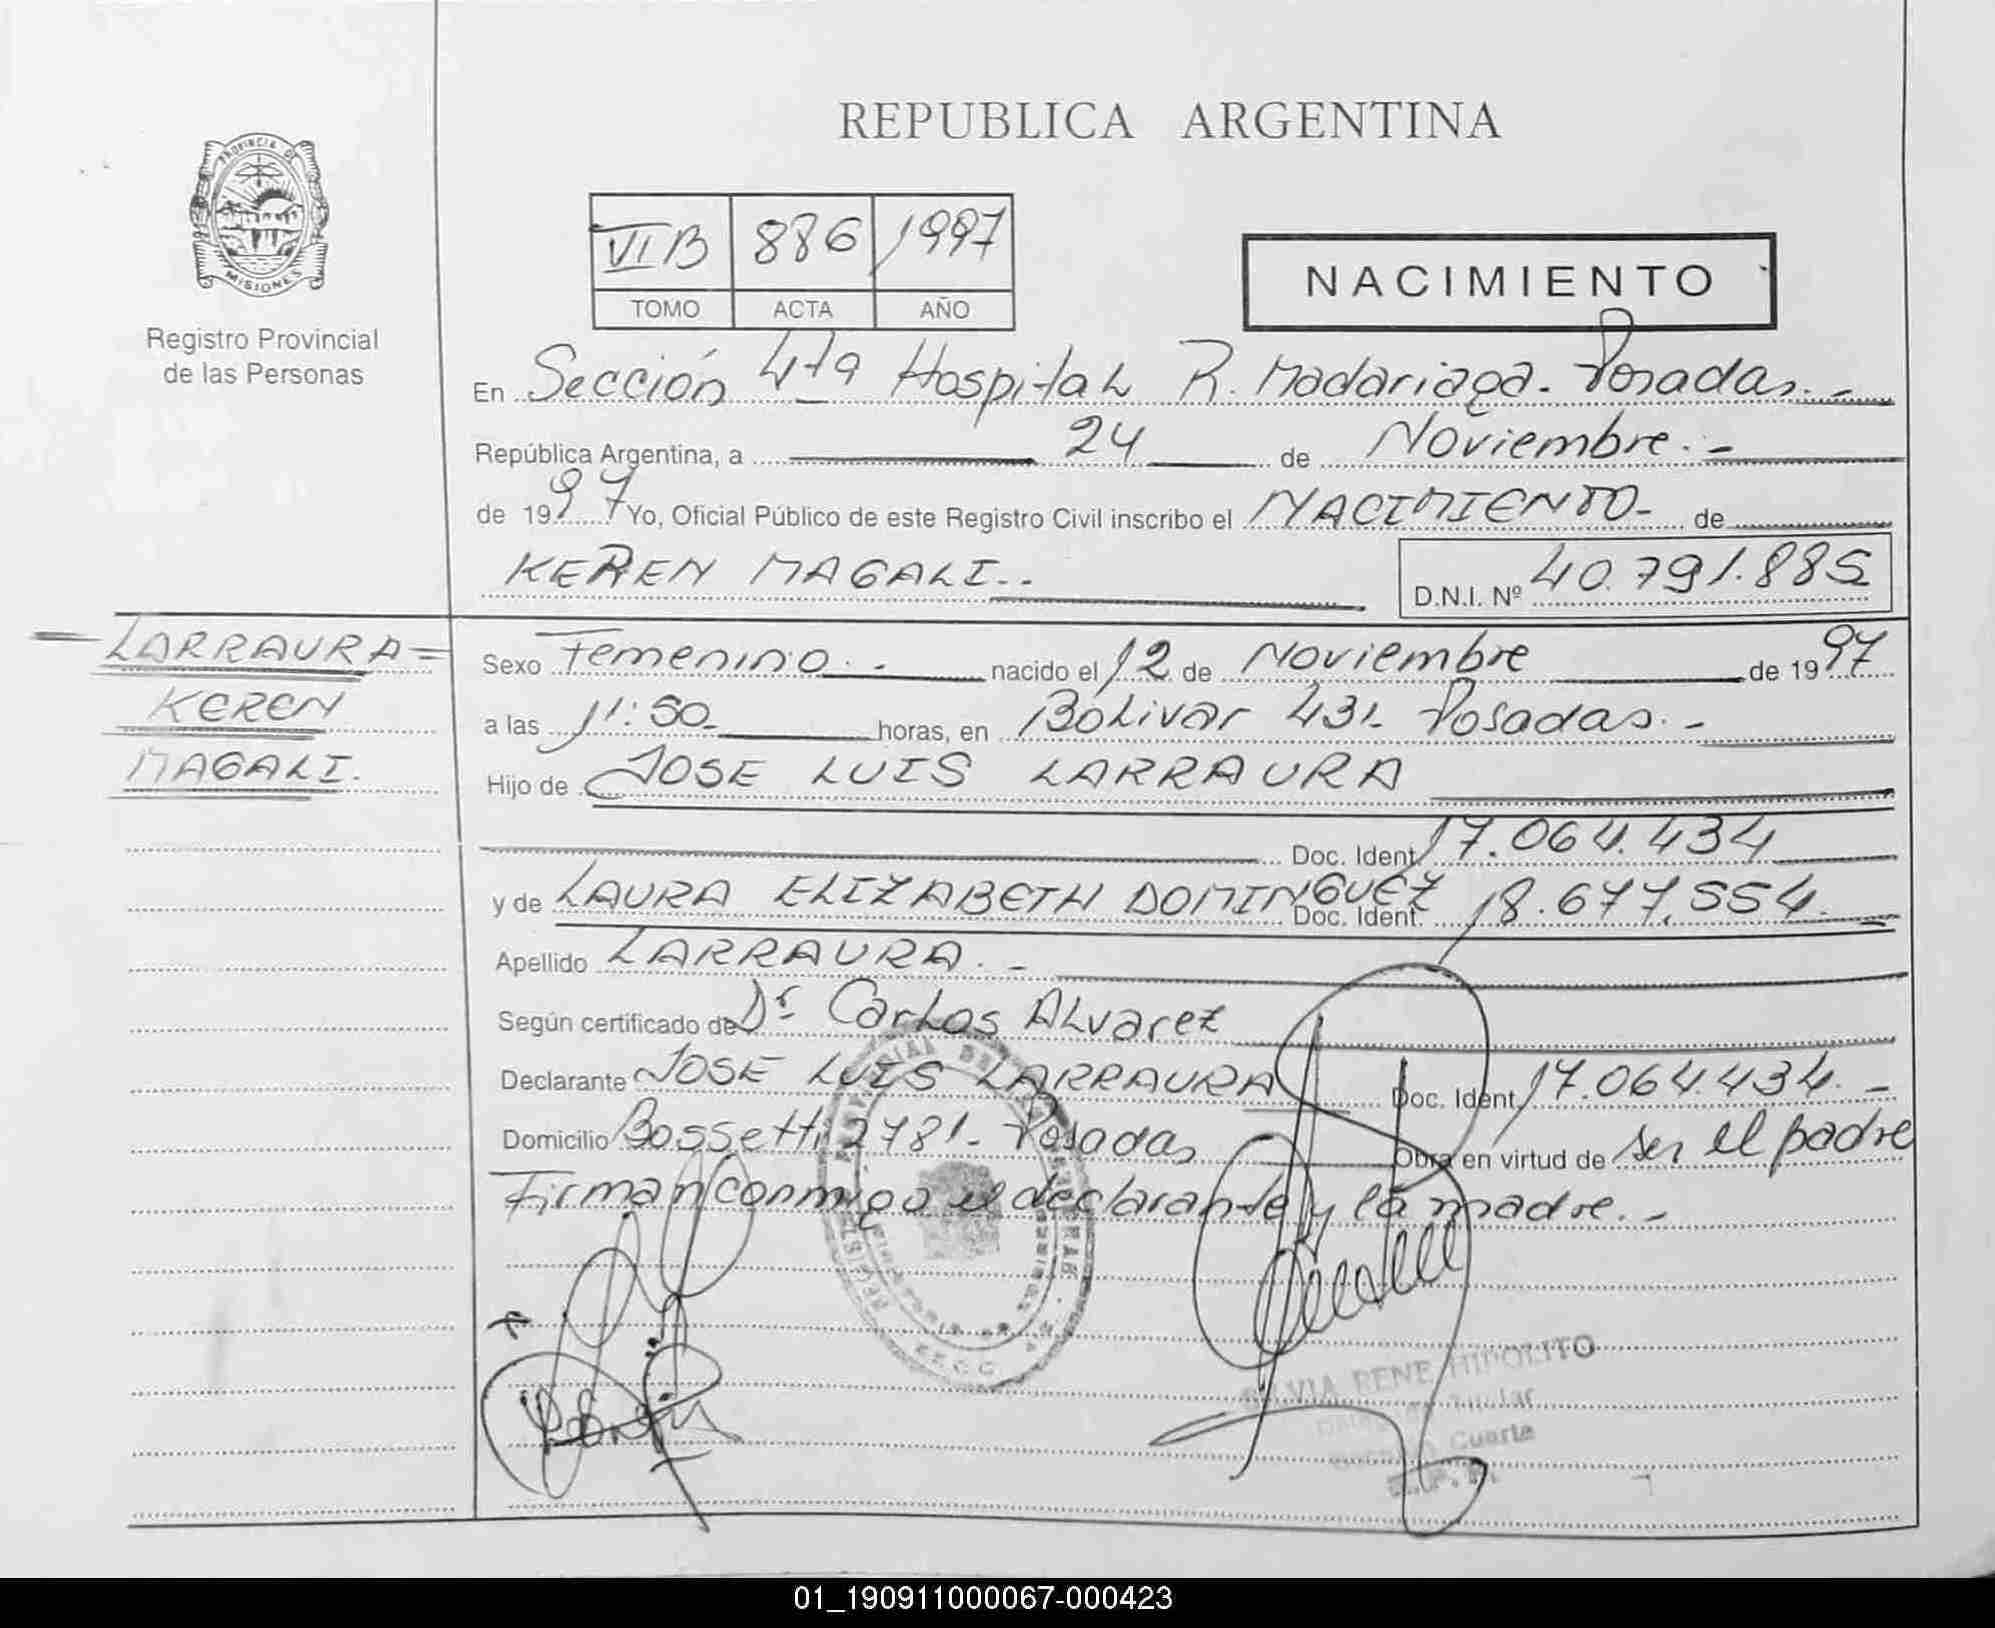 REPUBLICA ARGENTINA
PROVINCIA DE
MISIONES
Registro Provincial
de las Personas
VI B 886 1997
TOMO ACTA AÑO
NACIMIENTO
En Sección 4ta Hospital R. Madariaga. Posadas.-
República Argentina, a 24 de Noviembre.-
de 1997 Yo, Oficial Público de este Registro Civil inscribo el NACIMIENTO- de
KEREN MAGALI.. D.N.I. Nº 40.791.885
- LARRAURA =
KEREN
MAGALI.
Sexo Femenino.- nacido el 12 de Noviembre de 1997
a las 11:50 horas, en Bolivar 431- Posadas.-
Hijo de JOSE LUIS LARRAURA
Doc. Ident. 17.064.434
y de LAURA ELIZABETH DOMINGUEZ Doc. Ident. 18.677.554.-
Apellido LARRAURA.-
Según certificado de Dr Carlos Alvarez
Declarante JOSE LUIS LARRAURA Doc. Ident. 17.064.434.-
Domicilio Bossetti 2781- Posadas Obra en virtud de ser el padre
Firman conmigo el declarante y la madre.-
RENE HIPOLITO
Titular
Cuarta
01_190911000067-000423